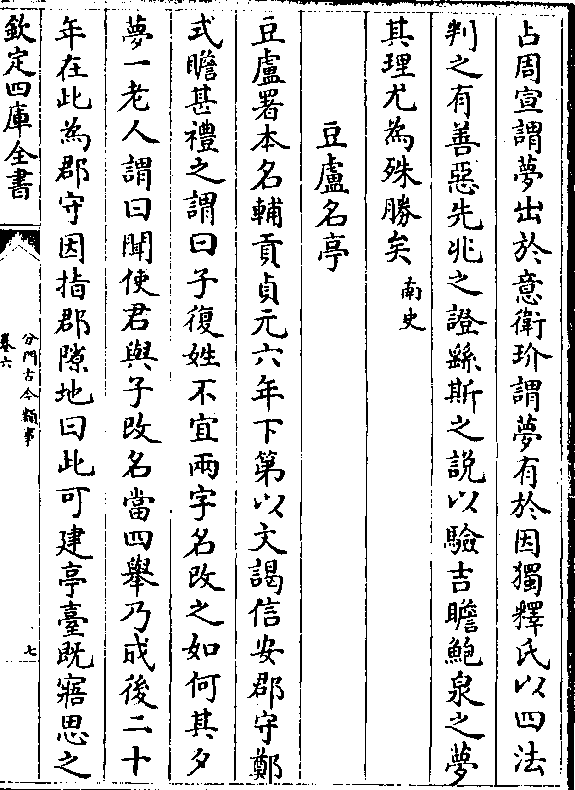 占周宣謂夢出於意衛玠謂夢有於因獨釋氏以四法
判之有善惡先兆之證繇斯之説以驗吉瞻鮑泉之夢
其理尤為殊勝矣 南史
豆盧名亭
豆盧署本名輔貢貞元六年下第以文謁信安郡守鄭
式瞻甚禮之謂曰子復姓不宜兩字名改之如何其夕
夢一老人謂曰聞使君與子改名當四舉乃成後二十
年在此為郡守因指郡隙地曰此可建亭臺既寤思之
欽定四庫全書
分門古今類事
卷六
七